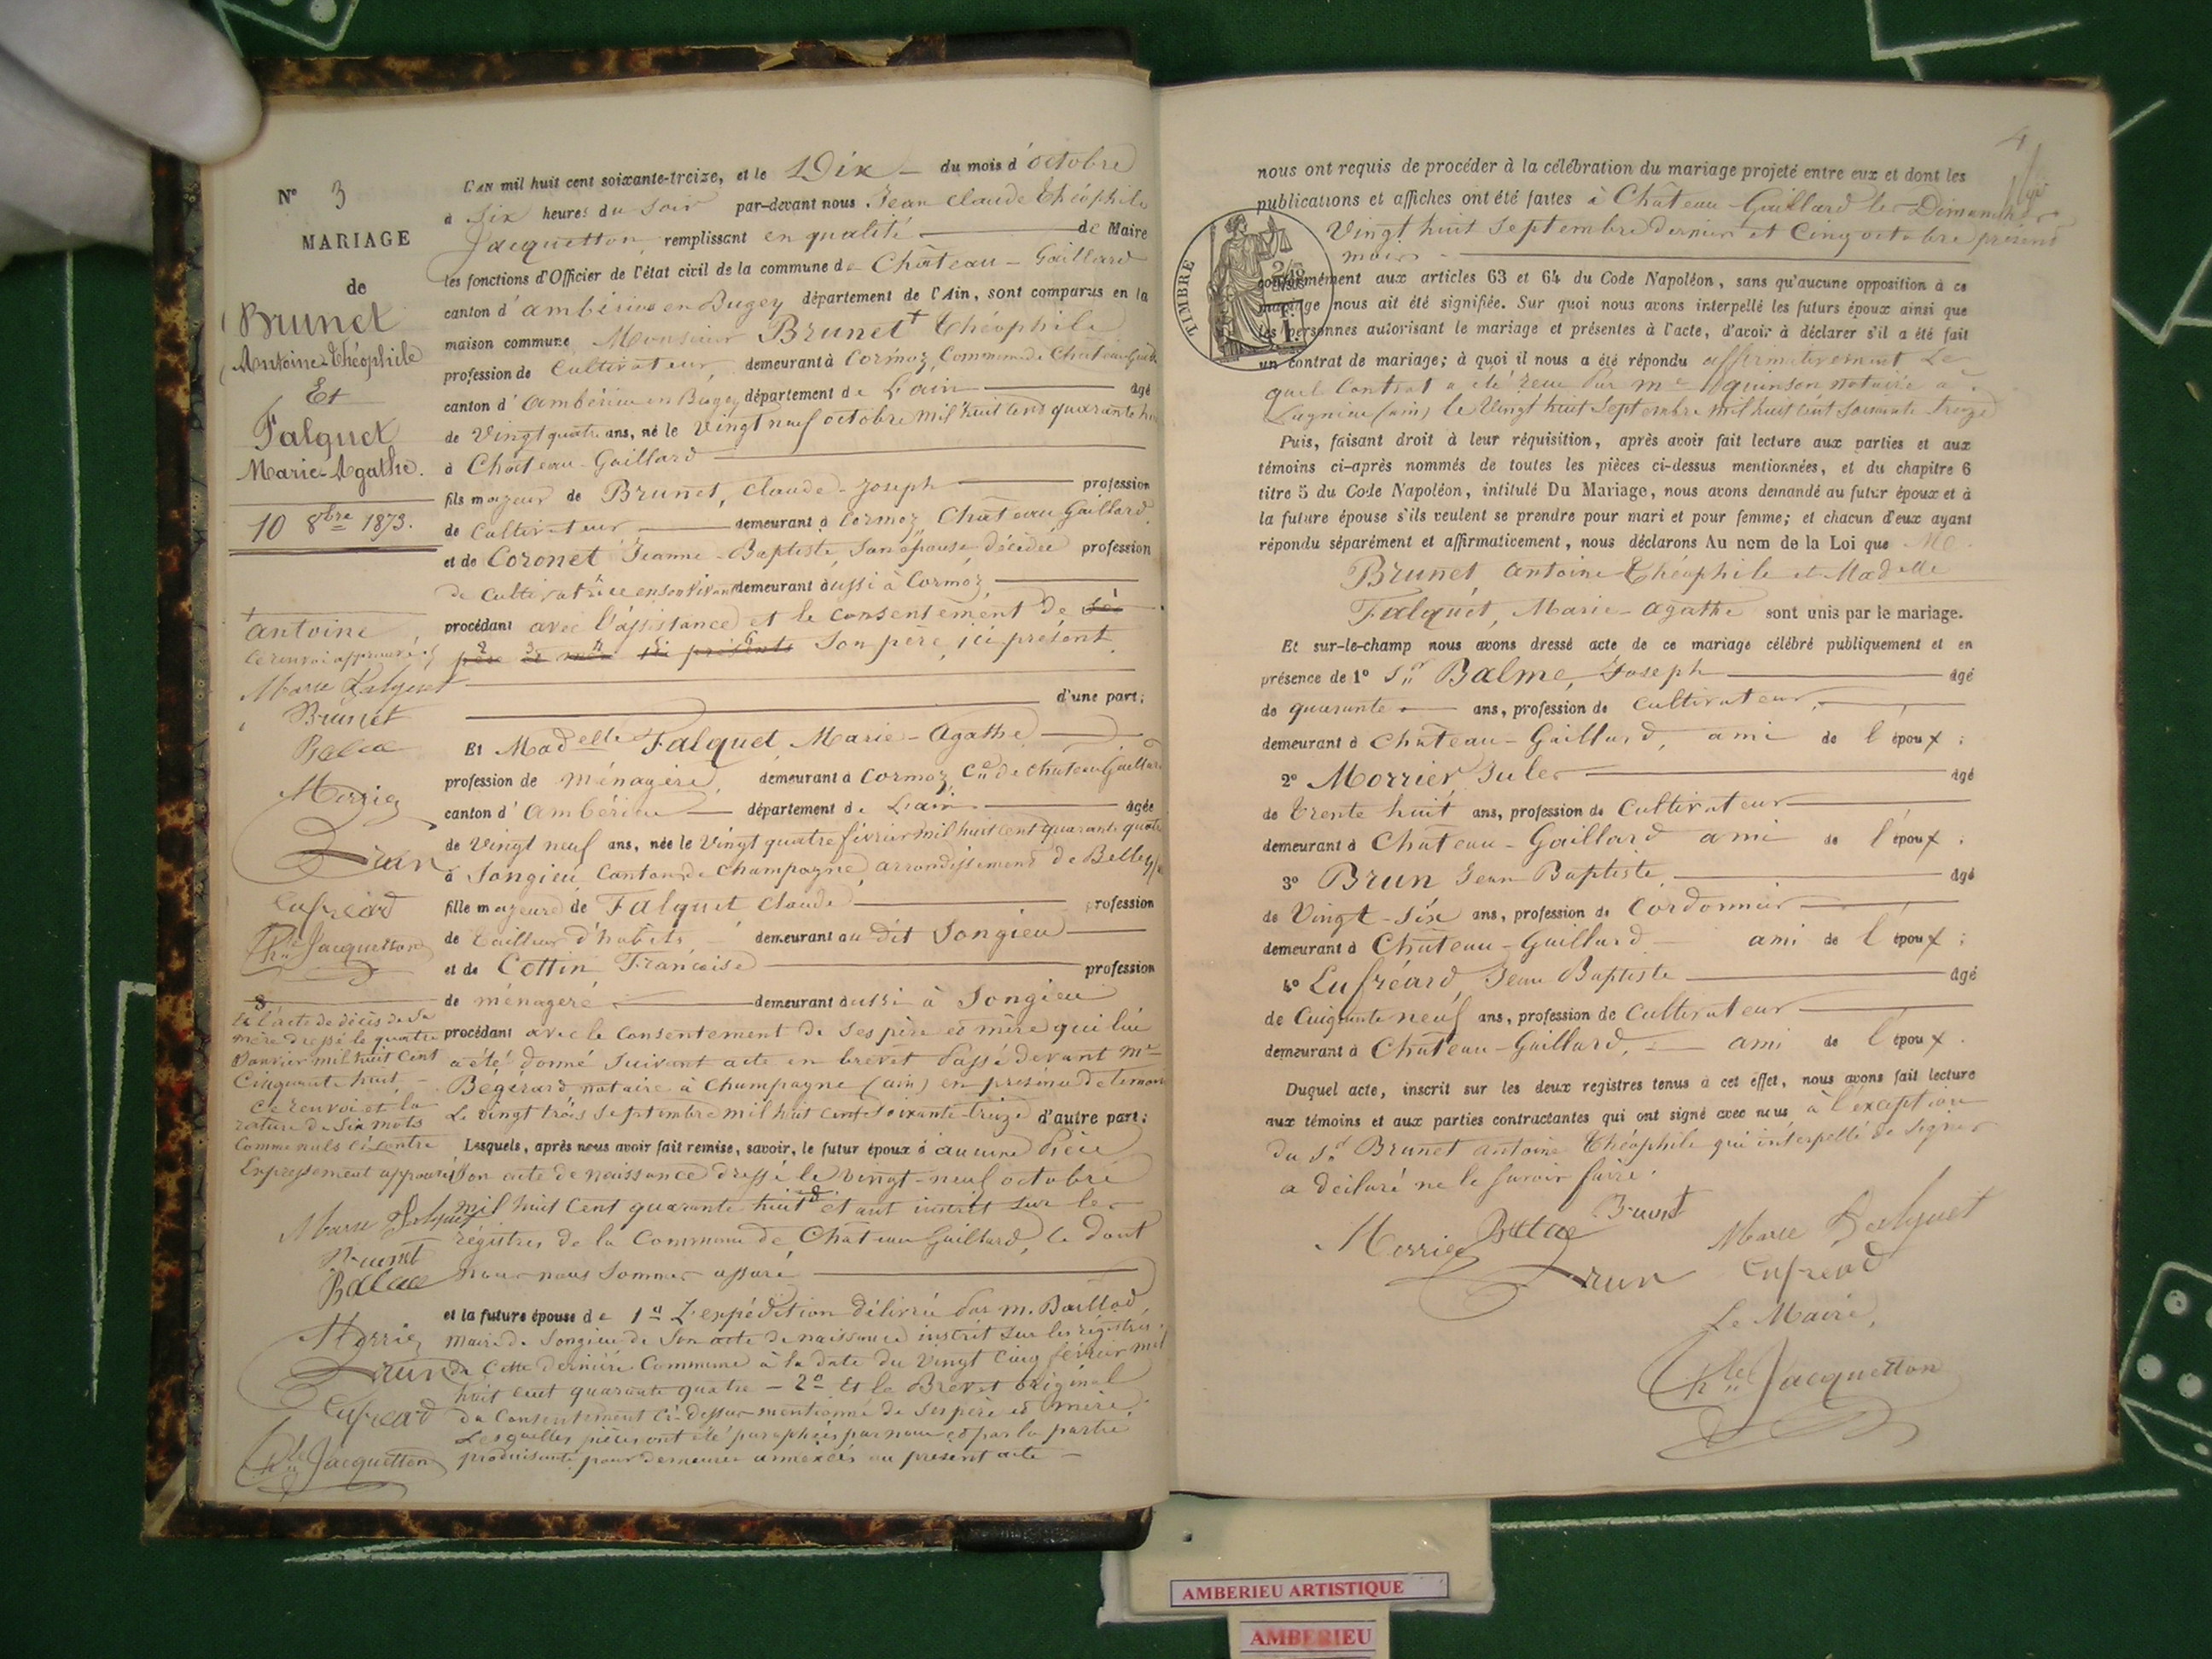 Nº 3
MARIAGE
de
Brunet
Antoine-Théophile
Et
Falquet
Marie-Agathe.
10 8bre 1873.
+
antoine
ce renvoi approuvé
Marie Falquet
Brunet
Balme
Morrier
Brun
Lufréard
Thle Jacquetton
8
Et l'acte de décès de sa
mère dressé le quatre
Janvier mil huit cent
Cinquante huit –
Ce renvoi et la
rature de six mots
comme nuls ci-contre
Expressément approuvés
Marie Falquet
Brunet
Balme
Morrier
Brun
Lufréard
Thle Jacquetton
L'AN mil huit cent soixante-treize, et le Dix – du mois d'octobre
à Six heures du Soir par-devant nous Jean Claude Théophile
Jacquetton remplissant en qualité de Maire
les fonctions d'Officier de l'état civil de la commune de Château-Gaillard
canton d'ambérieu en Bugey département de l'Ain, sont comparus en la
maison commune Monsieur Brunet + Théophile
profession de Cultivateur, demeurant à Cormoz, Commune de Château-Gaillard
canton d'Ambérieu en Bugey département de L'ain âgé
de Vingt quatre ans, né le Vingt neuf octobre mil huit cent quarante huit
à Château-Gaillard
fils majeur de Brunet, Claude-Joseph profession
de Cultivateur demeurant à Cormoz, Château Gaillard
et de Coronet Jeanne-Baptiste, son épouse, décédée profession
de cultivatrice en son vivant demeurant aussi à Cormoz
procédant avec l'assistance et le consentement de ses
père et mère ici présents son père, ici présent
d'une part;
Et Madelle Falquet, Marie-Agathe
profession de ménagère, demeurant à Cormoz Cne de Château Gaillard
canton d'Ambérieu département de L'ain âgée
de Vingt neuf ans, née le Vingt quatre février mil huit cent quarante quatre
à Songieu Canton de Champagne, arrondissement de Belley
fille majeure de Falquet Claude profession
de tailleur d'habits demeurant au dit Songieu
et de Cottin Françoise profession
de ménagère demeurant aussi à Songieu
procédant avec le Consentement de ses père et mère qui lui
a été donné suivant acte en brevet Passé devant Me
Bégérard, notaire à Champagne (ain) en présence de témoins
Le vingt trois septembre mil huit cent soixante-treize d'autre part;
Lesquels, après nous avoir fait remise, savoir, le futur époux d'aucune Pièce
Son acte de naissance dressé le vingt-neuf octobre
mil huit Cent quarante huit étant inscrit sur les
régistres de la Commune de Château Gaillard, ce dont
nous nous sommes assuré
et la future épouse de 1º L'expédition délivrée par M. Baillod,
maire de Songieu de Son acte de naissance inscrit sur les régistres
de Cette dernière Commune à la date du Vingt Cinq février mil
huit cent quarante quatre – 2º Et le Brevet original
du Consentement ci-dessus mentionné de ses père et mère.
Lesquelles pièces ont été paraphées par nous et par la partie
produisante pour demeurer annexées au présent acte –
4
nous ont requis de procéder à la célébration du mariage projeté entre eux et dont les
publications et affiches ont été faites à Château-Gaillard les Dimanches
Vingt huit Septembre dernier et Cinq octobre présent
mois
TIMBRE
conformément aux articles 63 et 64 du Code Napoléon, sans qu'aucune opposition à ce
mariage nous ait été signifiée. Sur quoi nous avons interpellé les futurs époux ainsi que
les personnes autorisant le mariage et présentes à l'acte, d'avoir à déclarer s'il a été fait
un contrat de mariage; à quoi il nous a été répondu affirmativement Le
quel Contrat a été reçu Par Me Quinson notaire à
Lagnieu (ain) le Vingt huit Septembre mil huit cent soixante treize
Puis, faisant droit à leur réquisition, après avoir fait lecture aux parties et aux
témoins ci-après nommés de toutes les pièces ci-dessus mentionnées, et du chapitre 6
titre 5 du Code Napoléon, intitulé Du Mariage, nous avons demandé au futur époux et à
la future épouse s'ils veulent se prendre pour mari et pour femme; et chacun d'eux ayant
répondu séparément et affirmativement, nous déclarons Au nom de la Loi que Mr
Brunet antoine Théophile et Madelle
Falquet, Marie-agathe sont unis par le mariage.
Et sur-le-champ nous avons dressé acte de ce mariage célébré publiquement et en
présence de 1º Sr Balme, Joseph âgé
de quarante ans, profession de Cultivateur,
demeurant à Château-Gaillard, ami de l'époux;
2º Morrier, Jules âgé
de Trente huit ans, profession de Cultivateur
demeurant à Château-Gaillard ami de l'époux;
3º Brun Jean Baptiste âgé
de Vingt-Six ans, profession de Cordonnier
demeurant à Château-Gaillard ami de l'époux;
4º Lufréard, Jean Baptiste âgé
de Cinquante neuf ans, profession de Cultivateur
demeurant à Château-Gaillard, ami de l'époux.
Duquel acte, inscrit sur les deux registres tenus à cet effet, nous avons fait lecture
aux témoins et aux parties contractantes qui ont signé avec nous à l'exception
du Sr Brunet antoine Théophile qui interpellé de signer
a déclaré ne le savoir faire.
Morrier Balme Brunet Marie Falquet
Brun Lufréard
Le Maire,
Thle Jacquetton
AMBERIEU ARTISTIQUE
AMBERIEU